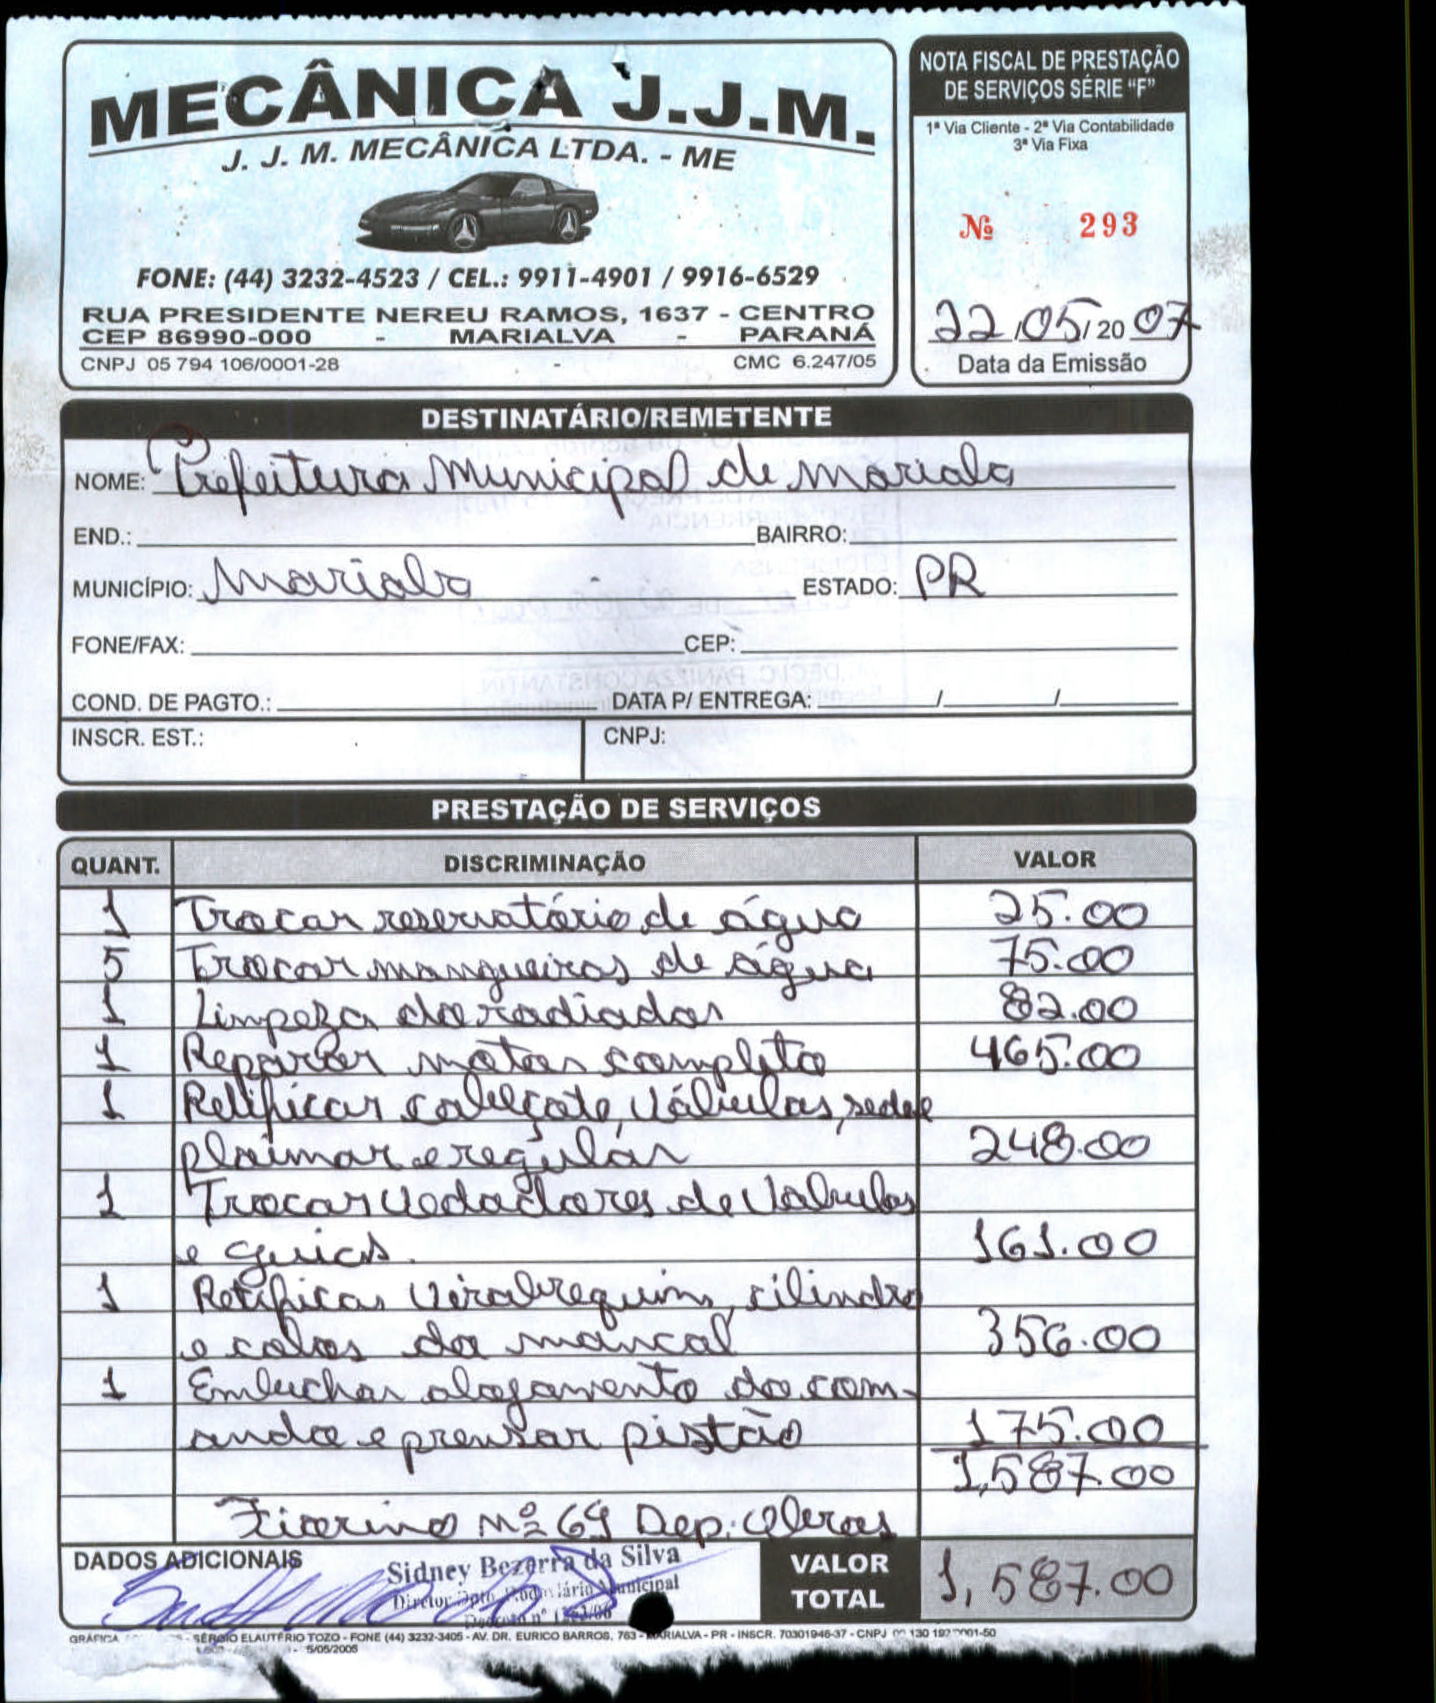 MECÂNICA J.J.M.
J. J. M. MECÂNICA LTDA. - ME
FONE: (44) 3232-4523 / CEL.: 9911-4901 / 9916-6529
RUA PRESIDENTE NEREU RAMOS, 1637 - CENTRO
CEP 86990-000 - MARIALVA - PARANÁ
CNPJ 05 794 106/0001-28 - CMC 6.247/05
NOTA FISCAL DE PRESTAÇÃO
DE SERVIÇOS SÉRIE "F"
1ª Via Cliente - 2ª Via Contabilidade
3ª Via Fixa
Nº 293
22/05/2007
Data da Emissão
DESTINATÁRIO/REMETENTE
NOME: Prefeitura Municipal de Marialva
END.: BAIRRO:
MUNICÍPIO: Marialva ESTADO: PR
FONE/FAX: CEP:
COND. DE PAGTO.: DATA P/ ENTREGA: / /
INSCR. EST.: CNPJ:
PRESTAÇÃO DE SERVIÇOS
QUANT. DISCRIMINAÇÃO VALOR
1 Trocar reservatório de água 25.00
5 Trocar mangueiras de água 75.00
1 Limpeza do radiador 82.00
1 Reparar motor completo 465.00
1 Retificar cabeçote, Válvulas, sede e
plaimar e regular 248.00
1 Trocar Vedadores de Válvulas
e guias. 161.00
1 Retificar Virabrequim, cilindro
e colos do mancal 356.00
1 Embuchar alojamento do com-
ando e prensar pistão 175.00
1,587.00
Fiorino Nº 69 Dep. Obras
DADOS ADICIONAIS
Sidney Bezerra da Silva
Diretor Dpto. Rodoviário Municipal
Decreto nº
VALOR
TOTAL 1,587.00
GRÁFICA - SÉRGIO ELAUTÉRIO TOZO - FONE (44) 3232-3405 - AV. DR. EURICO BARROS, 763 - MARIALVA - PR - INSCR. 70301946-37 - CNPJ
5/05/2005